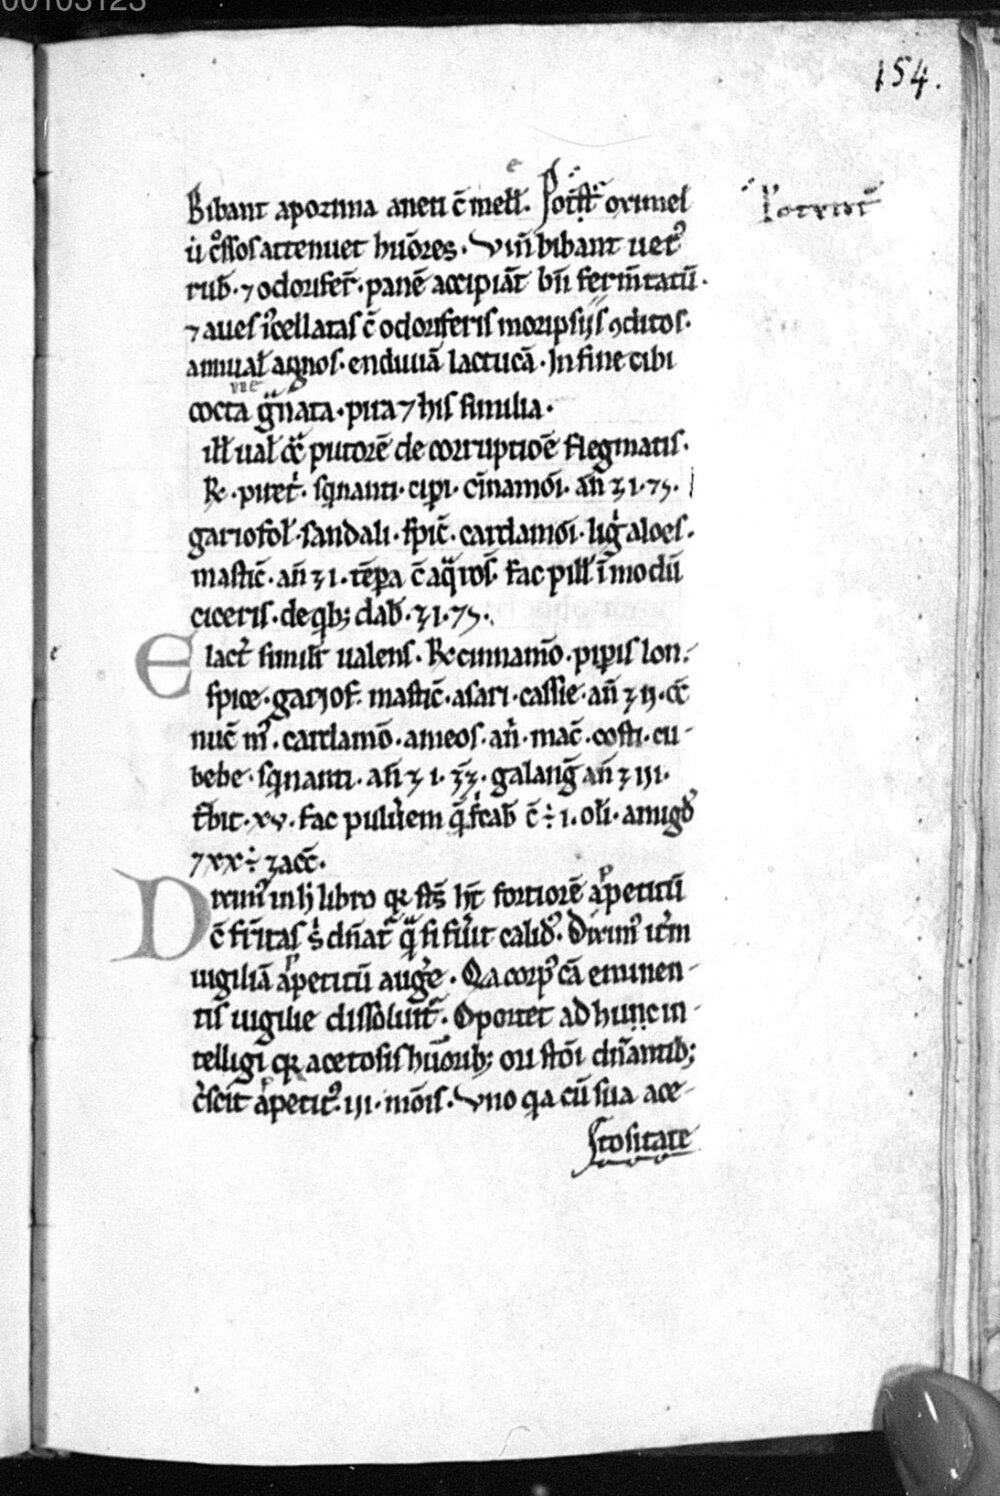 00103123
154.
Bibant apozima aneti c̄ mell̄. Potēst̄ oximel
ut̉ g̊ssos attenuet hūores. Vin̄ bibant uet᷒
rub̄. ⁊ odorifer̄. panē accipiāt bn̄ ferm̄tatū.
⁊ aues īcellatas c̄ odoriferis moripsijs ꝯditos.
annual̄ agnos. endiuiā lactucā. In fine cibi
cocta gͣnata. pira ⁊ his similia.
ill̄ ual̄ ꝯͣ putorē de corruptiōe flegmatis.
℞. piret̉. sq̇nanti. cip̲i. cīnamōi. an̄ ʒ i. ⁊ s̄.
gariofol̄. sandali. spic̄. cardamōi. lig̉ aloes.
mastic̄. an̄ ʒ i. tēp̲a c̄ aqͣ ros̄. fac pill̄ ī modū
ciceris. de qͥb; dab̄. ʒ i. ⁊ s̄.
Elact̉ simil̉r ualens. ℞ cinnamō. pip̲is lon.
spice. gariof. mastic̄. asari. cassie. an̄ ʒ ij. cc̄
nuc̄ m᷒. cardamō. ameos. an̄. mac̄. costi. cu-
bebe. sq̇nanti. an̄ ʒ i. ʒ̄ʒ. galanḡ an̄ ʒ iii.
t̄bit. xv. fac puluerem q̄ ɔficab̄ c̄ ÷ i. oli. amigd᷒
⁊ xx ÷ zacc̄.
Dixim᷒ in h̉ libro qꝛ sts̄ ht̄ fortiorē apͤetitū
c̄ fr̄itas s̉ dn̄at᷑ qͣ si fủit calid᷒. Dixim᷒ it̉m
uigiliā apͤetitū aug̉e. Qa corp᷒ cā eminen-
tis uigilie dissoluit᷑. Oportet ad hunc in-
telligi qꝛ acetosis hūorib; ori stōi dn̄antib;
c̉scit apͤetit᷒. iii. mōis. Vno qa cū sua ace-
tositate